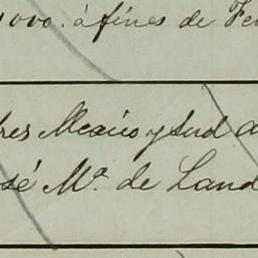 ovo. á fines de Fe
res Mexico y Sud a
sé Mª de Land